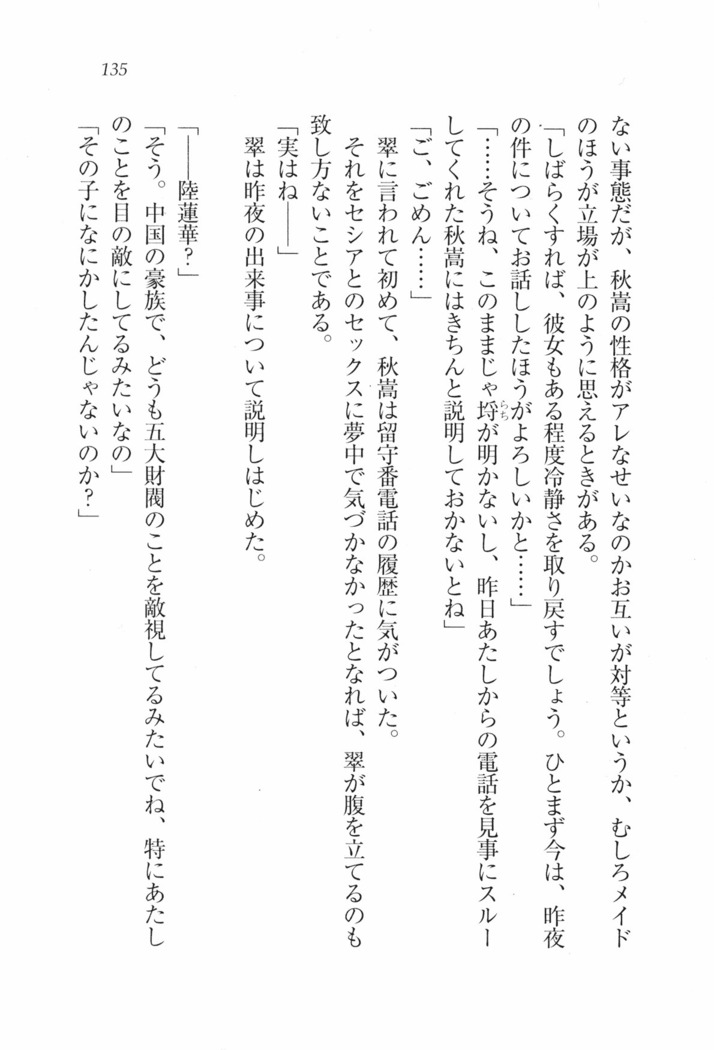 135
ない事態だが、秋嵩の性格がアレなせいなのかお互いが対等というか、むしろメイド
のほうが立場が上のように思えるときがある。
「しばらくすれば、彼女もある程度冷静さを取り戻すでしょう。ひとまず今は、昨夜
の件についてお話ししたほうがよろしいかと……」
「……そうね、このままじゃ埒が明かないし、昨日あたしからの電話を見事にスルー
してくれた秋嵩にはきちんと説明しておかないとね」
「ご、ごめん……」
翠に言われて初めて、秋嵩は留守番電話の履歴に気がついた。
それをセシアとのセックスに夢中で気づかなかったとなれば、翠が腹を立てるのも
致し方ないことである。
「実はね――」
翠は昨夜の出来事について説明しはじめた。
「――陸蓮華？」
「そう。中国の豪族で、どうも五大財閥のことを敵視してるみたいでね、特にあたし
のことを目の敵にしてるみたいなの」
「その子になにかしたんじゃないのか？」